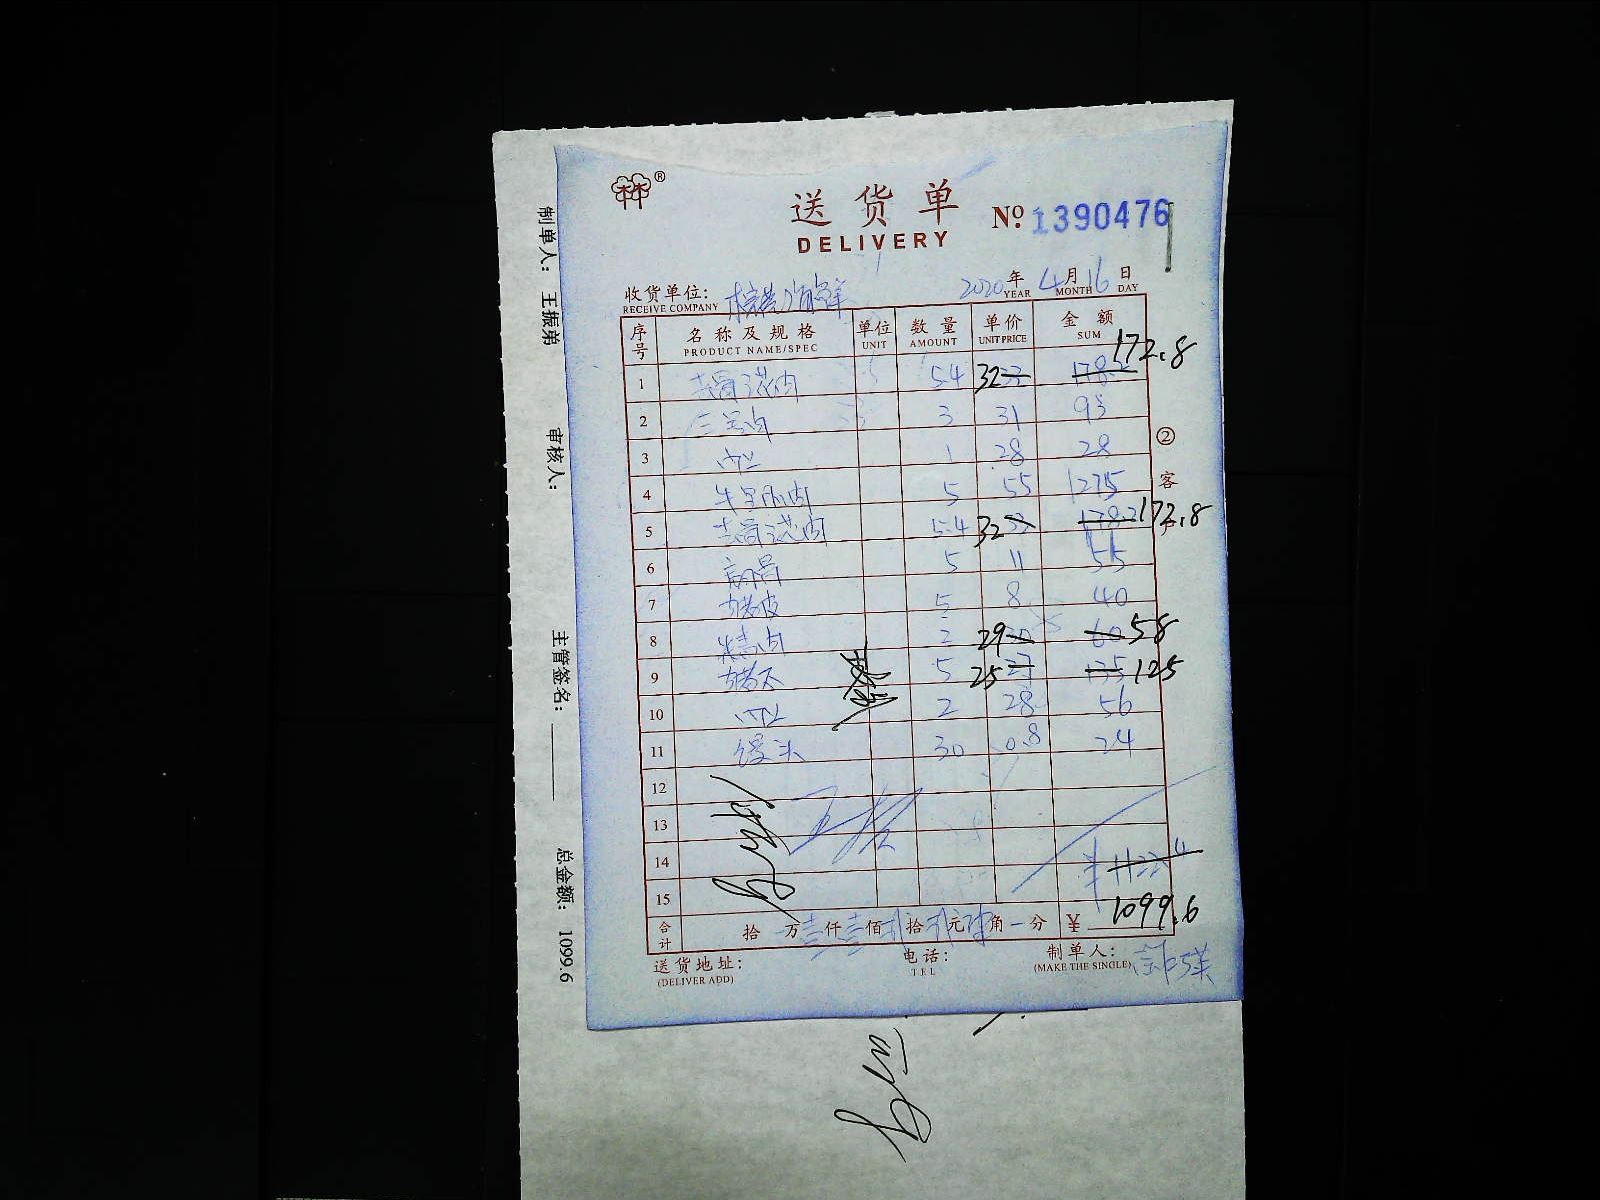 送货单
DELIVERY
No. 1390476
收货单位:
RECEIVE COMPANY
2020年 4月 16日
YEAR MONTH DAY
序号 名称及规格 单位 数量 单价 金额
PRODUCT NAME/SPEC UNIT AMOUNT UNIT PRICE SUM
1 去骨花肉 5.4 32 33 178.2 172.8
2 3 31 93
3 1 28 28
4 5 55 275
5 去骨花肉 5.4 32 33 178.2 172.8
6 5 11 55
7 5 8 40
8 2 29 30 60 58
9 5 25 27 135 125
10 2 28 56
11 馒头 30 0.8 24
12
13
14 ¥1122.4
15
合计 拾 万 壹仟 壹佰 贰拾 贰元 角 一分 ¥ 1099.6
送货地址:
(DELIVER ADD)
电话:
TEL
制单人:
(MAKE THE SINGLE)
② 客户
制单人: 王振弟 审核人: 主管签名: 总金额: 1099.6